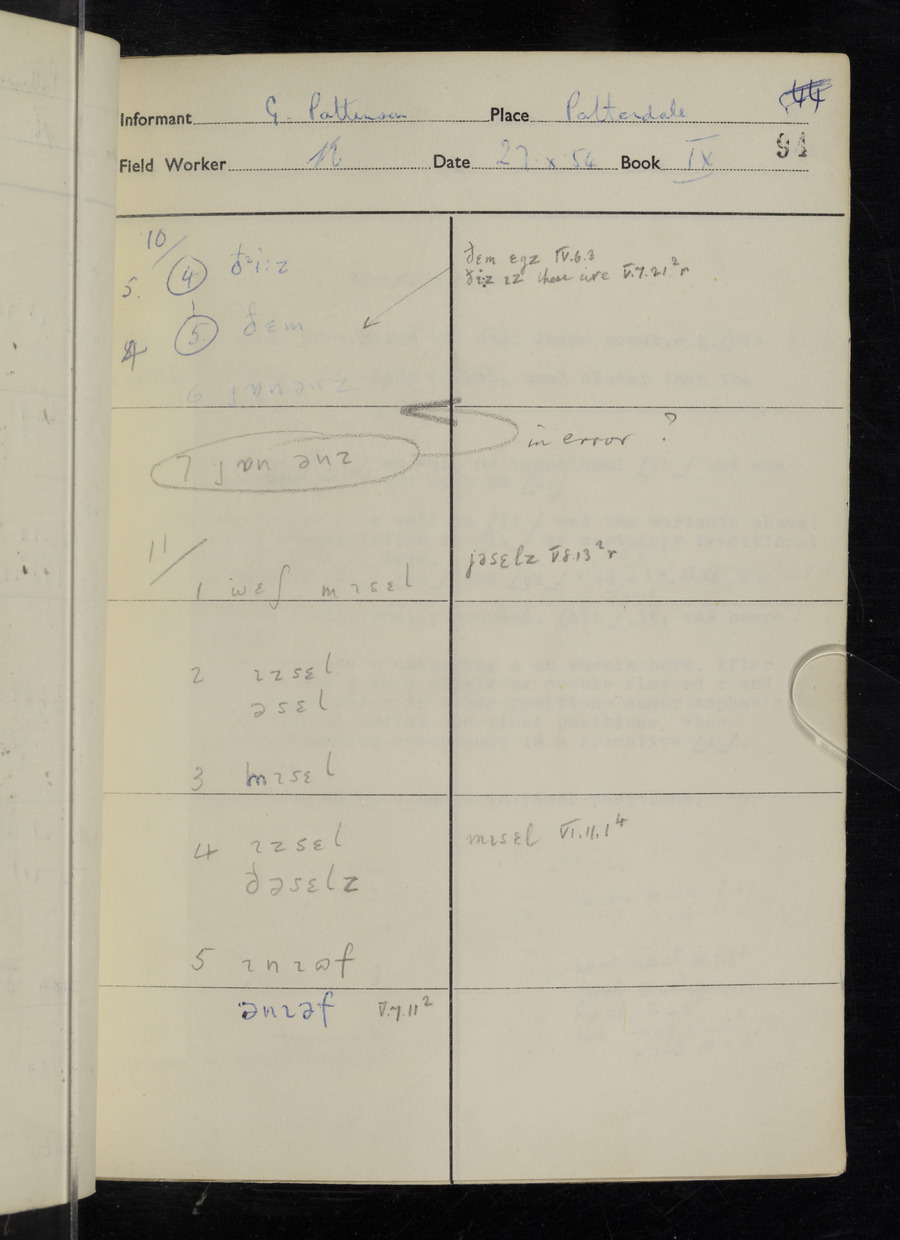 Informant G. Pattinson Place Patterdale 44
Field Worker Date 27.x.54 Book IX 94
10/
5. 4 ðᵊi:z
4 5 ðɛm
6
ðɛm ɛgz IV.6.3
ðɪ:z ɪz these are V.7.21²r
7
in error ?
11/
1 mɪsɛl
jəsɛlz V.8.13²r
2 ɪzsɛl
əsɛl
3 mɪsɛl
4 ɪzsɛl
ðəsɛlz
mɪsɛl VI.11.1⁴
5 ɪnɪəf
ənɪəf V.7.11²